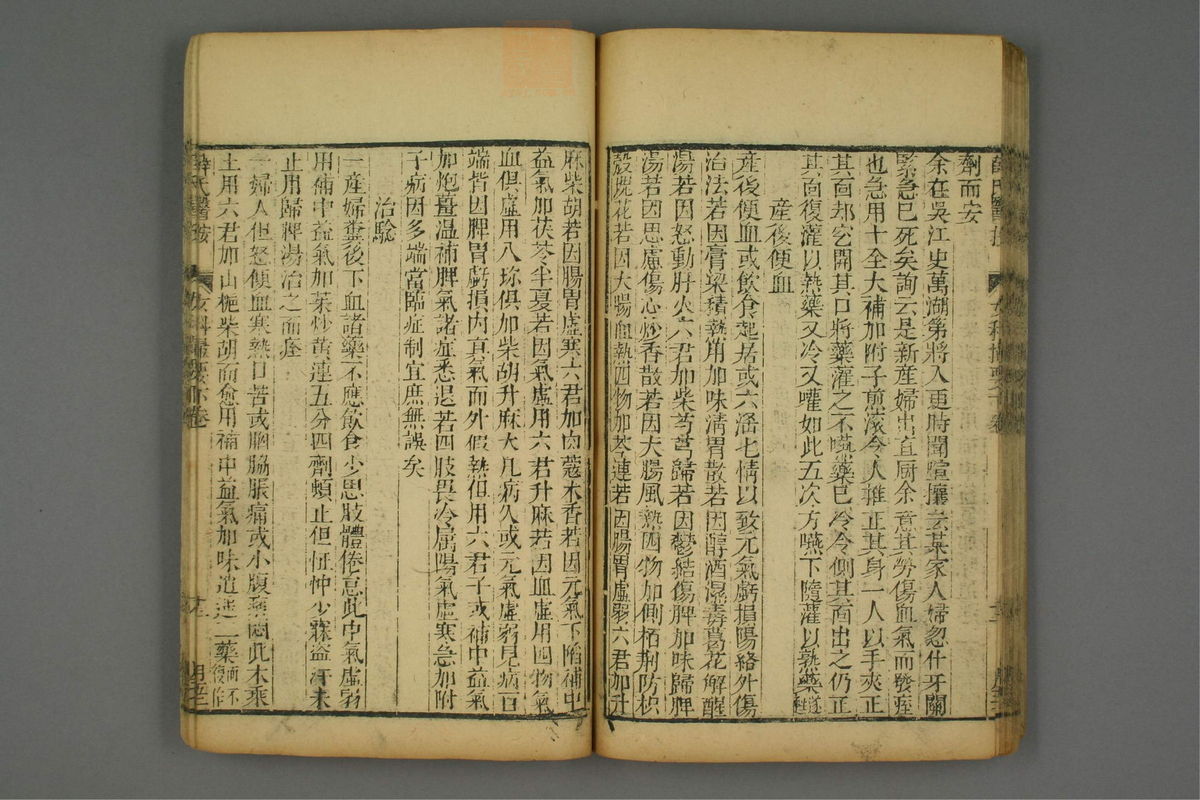 劑而安
余在吳江史萬湖第將入更時聞喧攘云某家人婦忽仆牙關
緊急已死矣詢云是新産婦出直厨余意其勞傷血氣而發痓
也急用十全大補加附子煎滚令人推正其身一人以手夾正
其面却空開其口將藥灌之不嚥藥已冷令側其面出之仍正
其面復灌以熱藥又冷又嚾如此五次方嚥下隨灌以熱藥遂甦
産後便血
産後便血或飲食起居或六滛七情以致元氣虧損陽絡外傷
治法若因膏梁積熱用加味清胃散若因醇酒濕毒葛花解酲
湯若因怒動肝火六君加柴芍芎歸若因鬱結傷脾加味歸脾
湯若因思慮傷心妙香散若因大腸風熱四物加側栢荆防枳
殼槐花若因大腸血熱四物加芩連若因腸胃虛弱六君加升
麻柴胡若因腸胃虛寒六君加肉蔻木香若因元氣下陷補中
益氣加茯苓半夏若因氣虛用六君升麻若因血虛用四物氣
血俱虛用八珍俱加柴胡升麻大凡病久或元氣虛弱見病百
端皆因脾胃虧損内真氣而外假熱但用六君子或補中益氣
加炮薑温補脾氣諸症悉退若四肢畏冷屬陽氣虛寒急加附
子病因多端當臨症制宜庶無誤矣
治驗
一產婦糞後下血諸藥不應飲食少思肢體倦怠此中氣虛弱
用補中益氣加茱炒黄連五分四劑頓止但怔忡少寐盜汗未
止用歸脾湯治之而痊
一婦人但怒便血寒熱口苦或胸脇脹痛或小腹痞悶此木乘
土用六君加山梔柴胡而愈用補中益氣加味逍遥二藥而不復作
薛氏醫按
女科撮要下卷